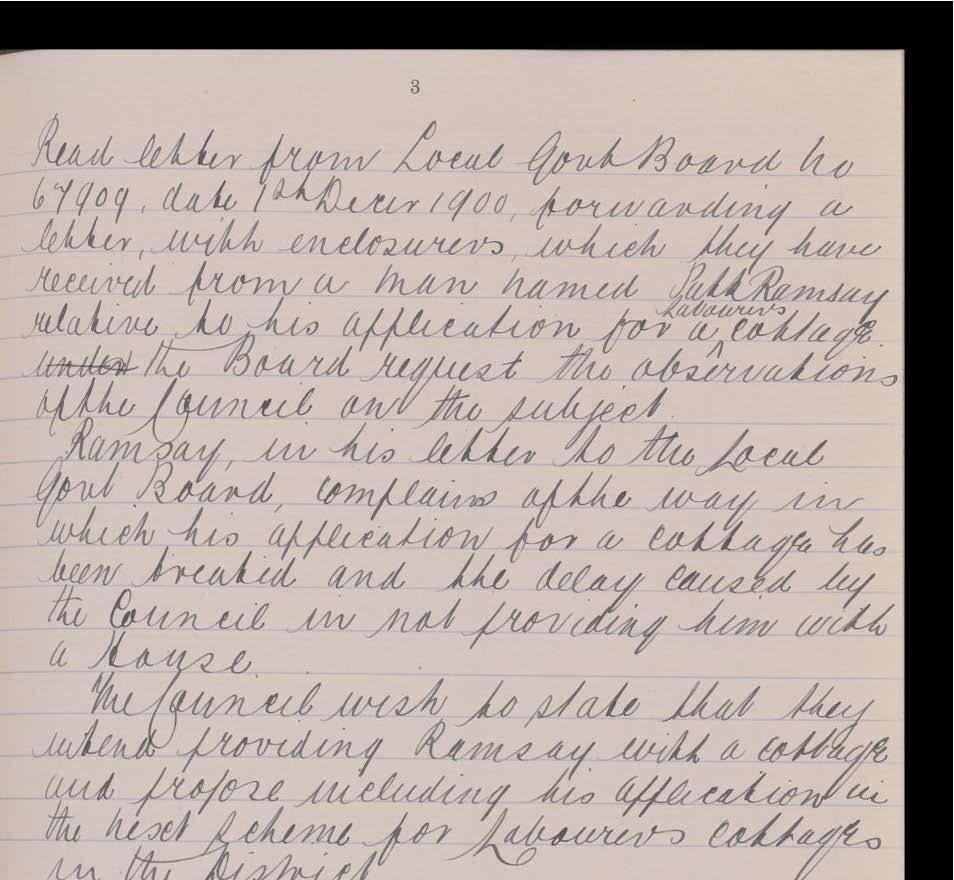 3
Read letter from Local Govt Board No
67909, date 1st Decer 1900, forwarding a
letter, with enclosurers, which they have
received from a man named Patk Ramsay
relative to his application for a Labourers cottage.
under the Board request the observations
of the Council on the subject.
Ramsay, in his letter to the Local
Govt Board, complains of the way in
which his application for a cottage has
been treated and the delay caused by
the Council in not providing him with
a House.
The Council wish to state that they
intend providing Ramsay with a cottage
and propose including his application in
the next scheme for Labourers cottages
in the District